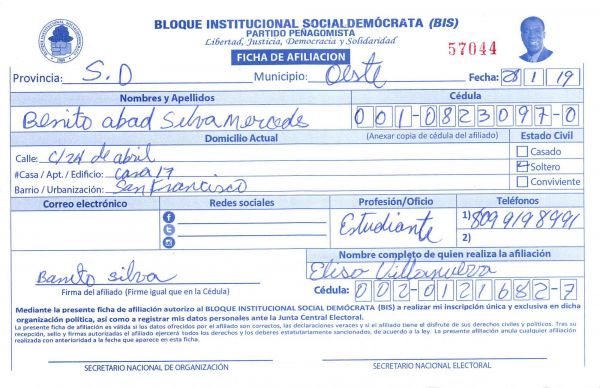 BLOQUE INSTITUCIONAL SOCIALDEMÓCRATA (BIS)
PARTIDO PEÑAGOMISTA
Libertad, Justicia, Democracia y Solidaridad
57044
FICHA DE AFILIACION
Provincia: S.D Municipio: Oeste Fecha: 28/1/19
Nombres y Apellidos Cédula
Benito abad Silva Mercedes 001-0823097-0
Domicilio Actual (Anexar copia de cédula del afiliado) Estado Civil
Calle: C/24 de abril Casado
#Casa / Apt. / Edificio: Casa 17 Soltero
Barrio / Urbanización: San Francisco Conviviente
Correo electrónico Redes sociales Profesión/Oficio Teléfonos
Estudiante 1) 8099198991
2)
Nombre completo de quien realiza la afiliación
Benito Silva Eliso Villanueva
Firma del afiliado (Firme igual que en la Cédula) Cédula: 002-0121682-7
Mediante la presente ficha de afiliación autorizo al BLOQUE INSTITUCIONAL SOCIAL DEMÓCRATA (BIS) a realizar mi inscripción única y exclusiva en dicha
organización política, así como a registrar mis datos personales ante la Junta Central Electoral.
La presente ficha de afiliación es válida si los datos ofrecidos por el afiliado son correctos, las declaraciones veraces y si el afiliado tiene el disfrute de sus derechos civiles y políticos. Tras su
recepción, sello y firmas autorizadas el afiliado ejercerá todos los derechos y los deberes estatutariamente sancionados, de acuerdo a la ley. La presente afiliación anula cualquier afiliación
realizada con anterioridad a la fecha que aparece en esta ficha.
SECRETARIO NACIONAL DE ORGANIZACIÓN SECRETARIO NACIONAL ELECTORAL